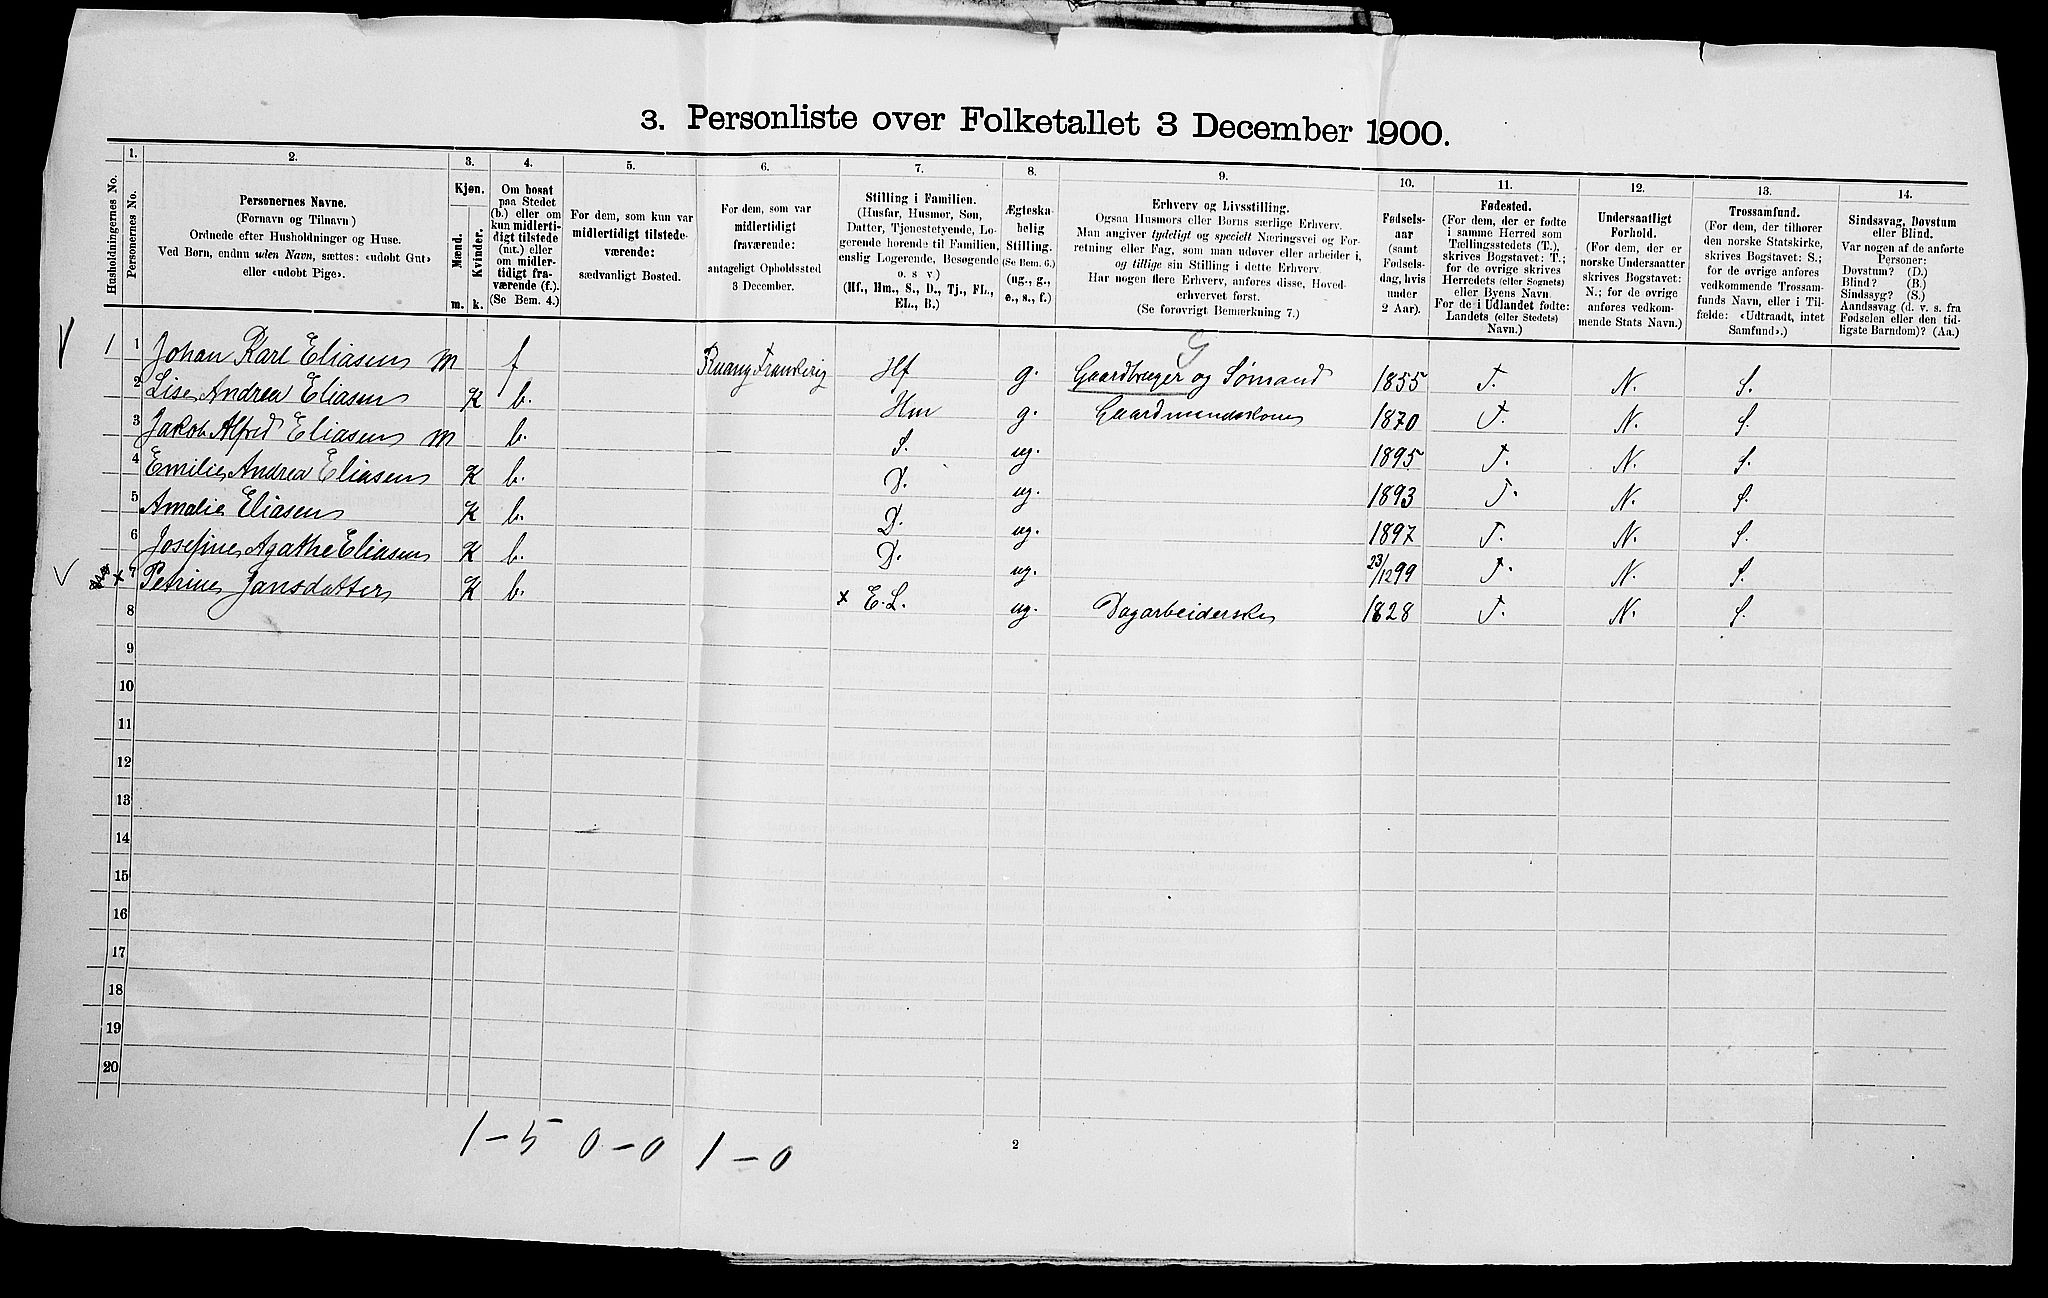 3. Personliste over Folketallet 3 December 1900.
1. 2. 3. 4. 5. 6. 7. 8. 9. 10. 11. 12. 13. 14.
Husholdningernes No.
Personernes No.
Personernes Navne.
(Fornavn og Tilnavn)
Ordnede efter Husholdninger og Huse.
Ved Børn, endnu uden Navn, sættes: «udøbt Gut»
eller «udøbt Pige».
Kjøn.
Mænd.
Kvinder.
m. k.
Om bosat
paa Stedet
(b.) eller om
kun midlerti-
digt tilstede
(mt.) eller
om midler-
tidigt fra-
værende (f.).
(Se Bem. 4.)
For dem, som kun var
midlertidigt tilstede-
værende:
sædvanligt Bosted.
For dem, som var
midlertidigt
fraværende:
antageligt Opholdssted
3 December.
Stilling i Familien.
(Husfar, Husmor, Søn,
Datter, Tjenestetyende, Lo-
gerende hørende til Familien,
enslig Logerende, Besøgende
o. s. v)
(Hf., Hm., S., D., Tj., FL.,
EL., B.)
Ægteska-
belig
Stilling.
(Se Bem. 6.)
(ug., g.,
e., s., f.)
Erhverv og Livsstilling.
Ogsaa Husmors eller Børns særlige Erhverv.
Man angiver tydeligt og specielt Næringsvei og For-
retning eller Fag, som man udøver eller arbeider i,
og tillige sin Stilling i dette Erhverv.
Har nogen flere Erhverv, anføres disse, Hoved-
erhvervet først.
(Se forøvrigt Bemærkning 7.)
Fødsels-
aar
(samt
Fødsels-
dag, hvis
under
2 Aar).
Fødested.
(For dem, der er fødte
i samme Herred som
Tællingsstedets (T.),
skrives Bogstavet: T.;
for de øvrige skrives
Herredets (eller Sognets)
eller Byens Navn.
For de i Udlandet fødte:
Landets (eller Stedets)
Navn.)
Undersaatligt
Forhold.
(For dem, der er
norske Undersaatter
skrives Bogstavet:
N.; for de øvrige
anføres vedkom-
mende Stats Navn.)
Trossamfund.
(For dem, der tilhører
den norske Statskirke,
skrives Bogstavet: S.;
for de øvrige anføres
vedkommende Trossam-
funds Navn, eller i Til-
fælde: «Udtraadt, intet
Samfund».)
Sindssvag, Døvstum
eller Blind.
Var nogen af de anførte
Personer:
Døvstum? (D.)
Blind? (B.)
Sindssyg? (S.)
Aandssvag (d. v. s. fra
Fødselen eller den tid-
ligste Barndom)? (Aa.)
G
1 1 Johan Karl Eliasen m f Hf g. Gaardbruger og Sømand 1855 T. N. S.
2 Lise Andrea Eliasen K b. Hm g. Gaardmandskone 1870 T. N. S.
3 Jakob Alfred Eliasen m b. S. ug. 1895 T. N. S.
4 Emilie Andrea Eliasen K b. D. ug. 1893 T. N. S.
5 Amalie Eliasen K b. D. ug. 1897 T. N. S.
6 Josefine Agathe Eliasen K b. D. ug. 23/12 99 T. N. S.
x 7 Petrine Jansdatter K b. x E.L. ug. Dagarbeiderske 1828 T. N. S.
8
9
10
11
12
13
14
15
16
17
18
19
20
1 - 5 0 - 0 1 - 0
2